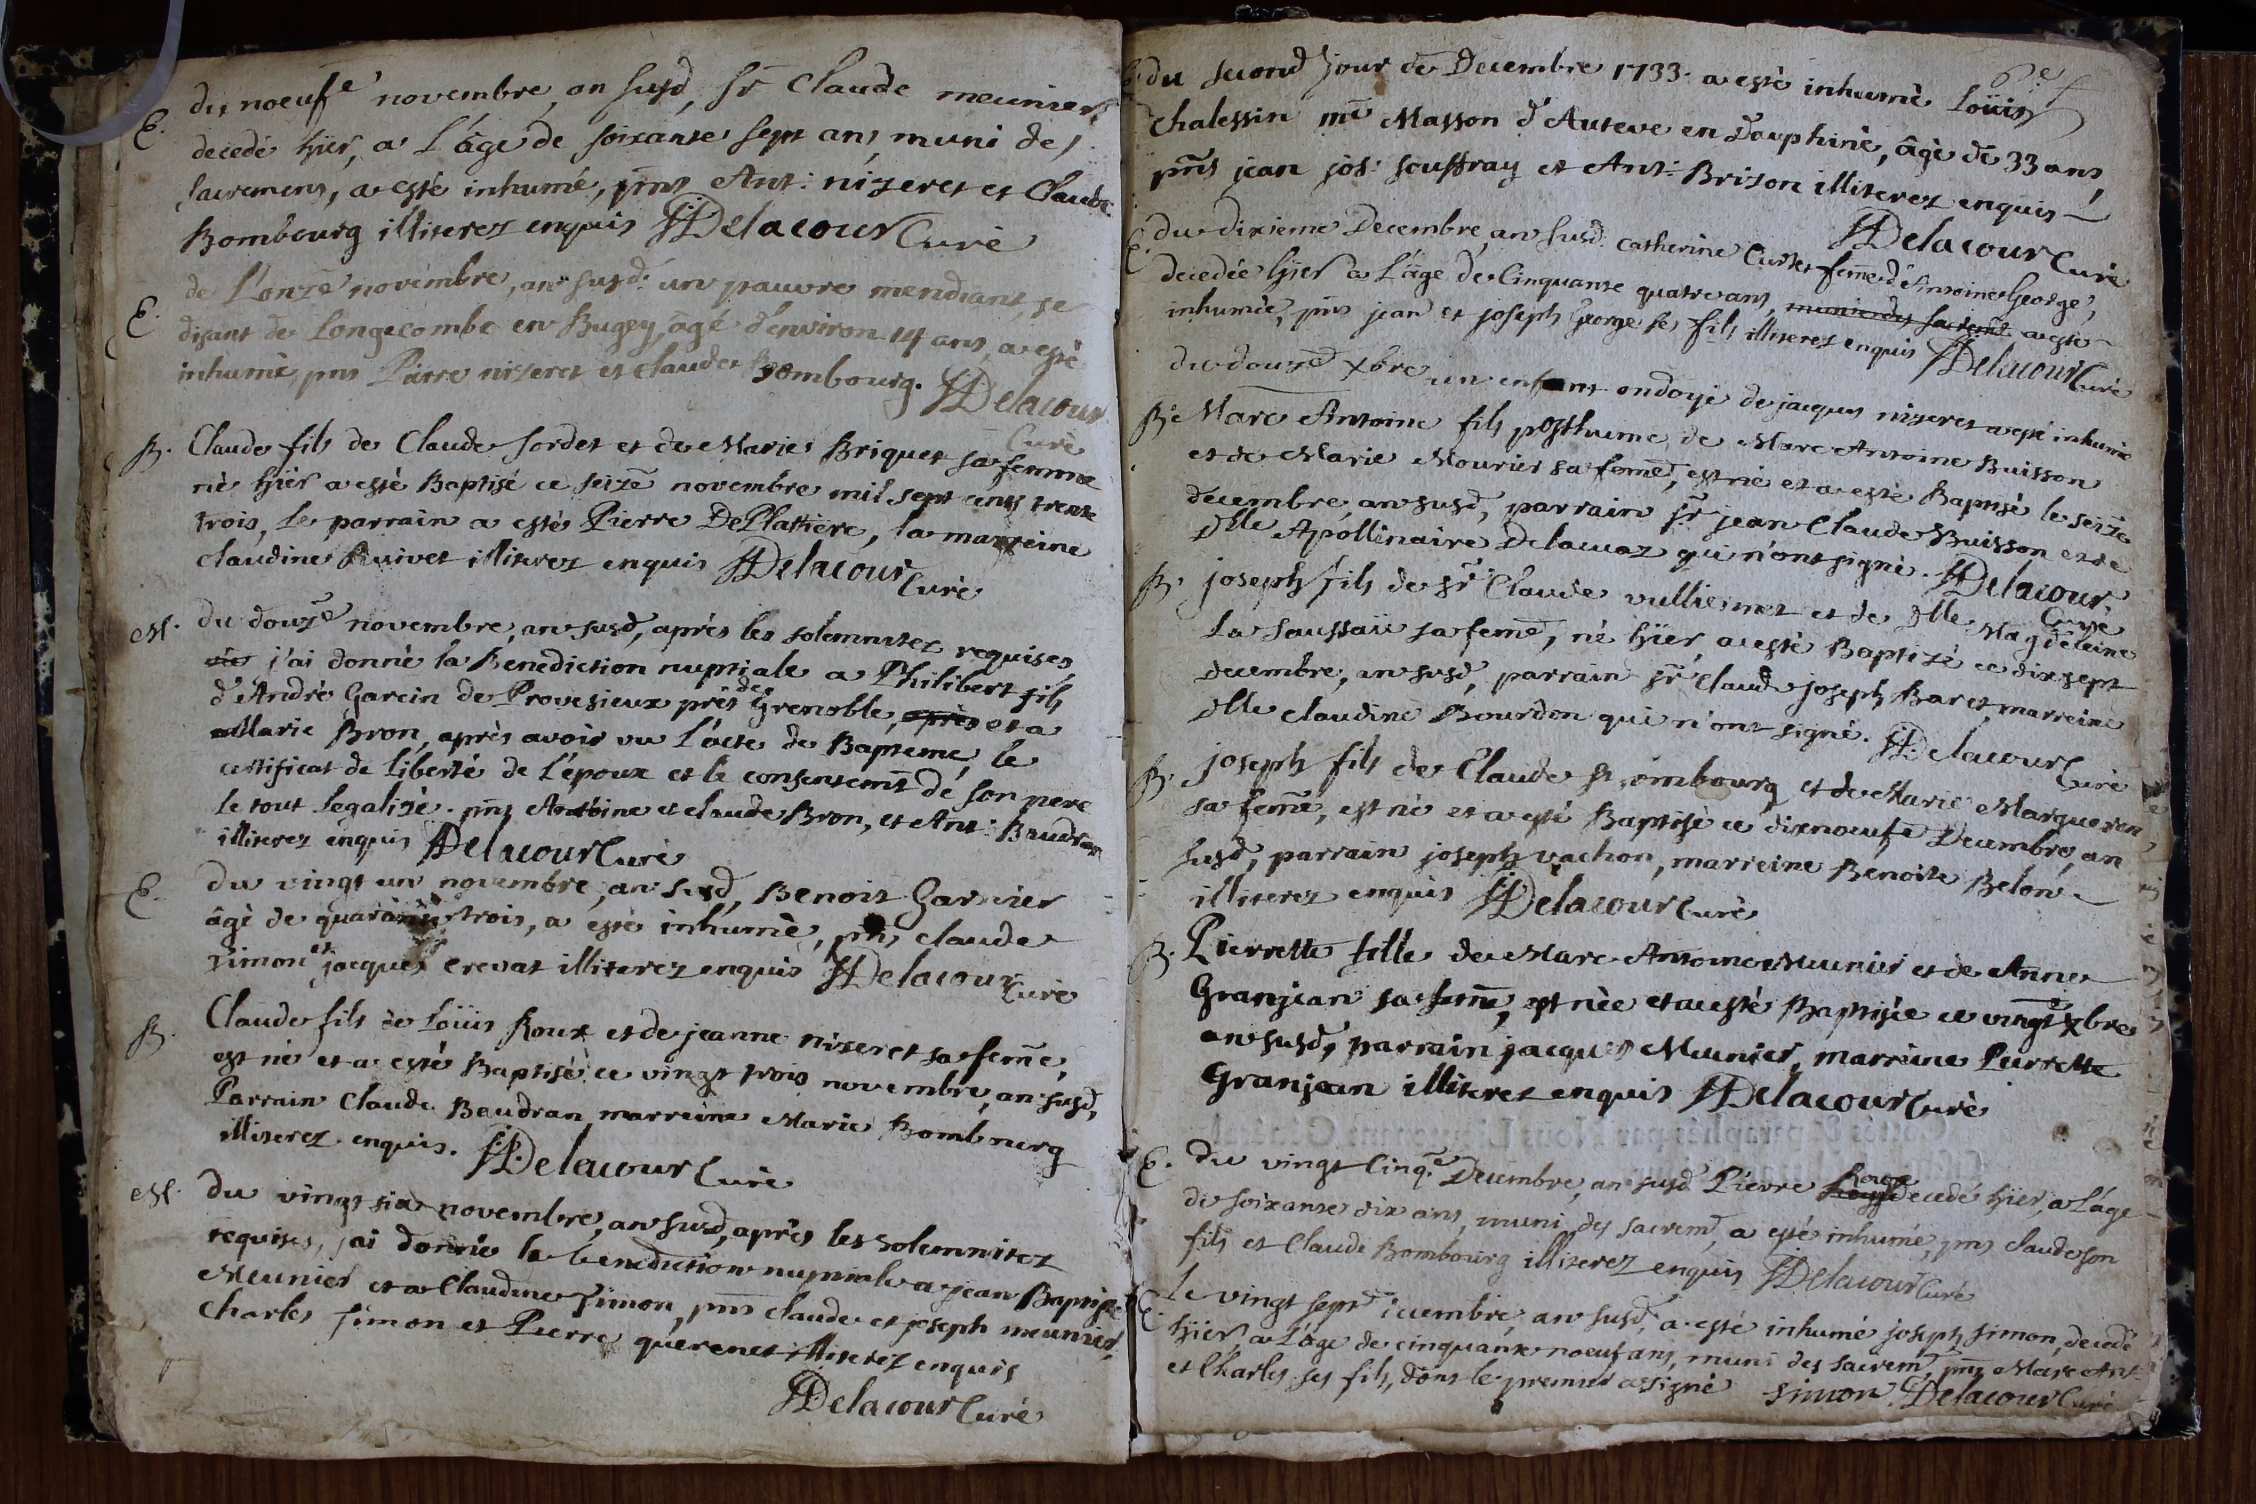 E. du noeufe novembre, an susd, sr Claude meunier
decedé hïer, a L'âge de soixante sept ans, muni des
sacremens, a esté inhumé, pnts Ant: nizeret et Claude
Bombourg illiterez enquis Delacour Curé
E. de L'onze novembre, an susd. un pauvre mendiant, se
disant de Longecombe en Bugey, âgé d'environ 14 ans, a esté
inhumé, pnts Pierre nizeret et claude Bombourg. Delacour
Curé
B. Claude fils de Claude Sordet et de Marie Briquet sa femme
né hïer a esté Baptisé ce seize novembre mil sept cents trente
trois, le parrain a esté Pierre De Plattiere, la marreine
claudine Ruivet illiterez enquis Delacour Curé
M. du douze novembre, an susd, aprés les solemnitez requises,
j'ai donné la Benediction nuptiale a Philibert fils
d'André Garcin de Provesieux prés de Grenoble, après et a
Marie Bron, aprés avoir vu L'acte de Bapteme, le
certificat de liberté de L'epoux et le consentemt de son pere
le tout legalizé. pnts Antoine et claude Bron, et Ant: Baudran
illiterez enquis Delacour Curé
E. du vingt un novembre, an susd, Benoit Garnier
âgé de quarante trois, a esté inhumé, pnts claude
simon et jacques crevat illiterez enquis Delacour Curé
B. Claude fils de Loüis Roux et de jeanne nizeret sa feme,
est né et a esté Baptisé ce vingt trois novembre, an susd,
Parrain Claude Baudran marreine Marie Bombourg
illiterez enquis. Delacour Curé
M. du vingt six novembre, an susd, aprés les solemnitez
requises, j'ai donnée la benediction nuptiale a jean Baptiste
Meunier et a Claudine Simon, pnts claude et joseph meunier,
Charles simon et Pierre querenet illiterez enquis
Delacour Curé
6e f
E. du second jour de Decembre 1733. a esté inhumé Loüis
Chalessin me Masson d'Auteve en Dauphiné, âgé de 33 ans,
pnts jean jos: souffray et Ant: Brizon illiterez enquis
Delacour Curé
E. du dixieme Decembre, an susd. catherine Curtet feme d'Antoine George,
decedée hïer a L'âge de Cinquante quatre ans, munie des sacremt a esté
inhumée, pnts jean et joseph George ses fils illiterez enquis Delacour Curé
du douze xbre un enfant ondoyé de jacques nizeret a esté inhumé
B. Marc Antoine fils posthume de Marc Antoine Buisson
et de Marie Mourier sa feme, est né et a esté Baptisé le seize
decembre, an susd, parrain sr jean Claude Buisson et de
Dlle Apollinaire Delacuaz qui n'ont signé. Delacour
Curé
B. joseph fils de sr Claude vulliemet et de Dlle Magdeleine
La saussaii sa feme, né hïer, a esté Baptizé ce dixsept
decembre, an susd, parrain sr claude joseph Baret, marreine
Dlle claudine Bourdon qui n'ont signé. Delacour Curé
B. joseph fils de Claude Bombourg et de Marie Margueron
sa feme, est né et a esté Baptisé ce dixnoeufe Decembre, an
susd, parrain joseph vachon, marreine Benoite Belon
illiterez enquis Delacour Curé
B. Pierrette fille de Marc Antoine Meunier et de Anne
Granjean sa feme, est née et a esté Baptisée ce vingt xbre
an susd, parrain jacques Meunier, marreine Pierrette
Granjean illiterez enquis Delacour Curé
E. du vingt Cinqe Decembre, an susd Pierre Roux decedé hïer, a L'âge
de soixante dix ans, muni des sacremt, a esté inhumé, pnts claude son
fils et Claude Bombourg illiterez enquis Delacour Curé
E. Le vingt sept decembre, an susd, a esté inhumé joseph simon, decedé
hïer, a L'âge de cinquante noeuf ans, muni des sacremt, pnts Marc Ant
et Charles ses fils, dont le premier a signé simon. Delacour Curé